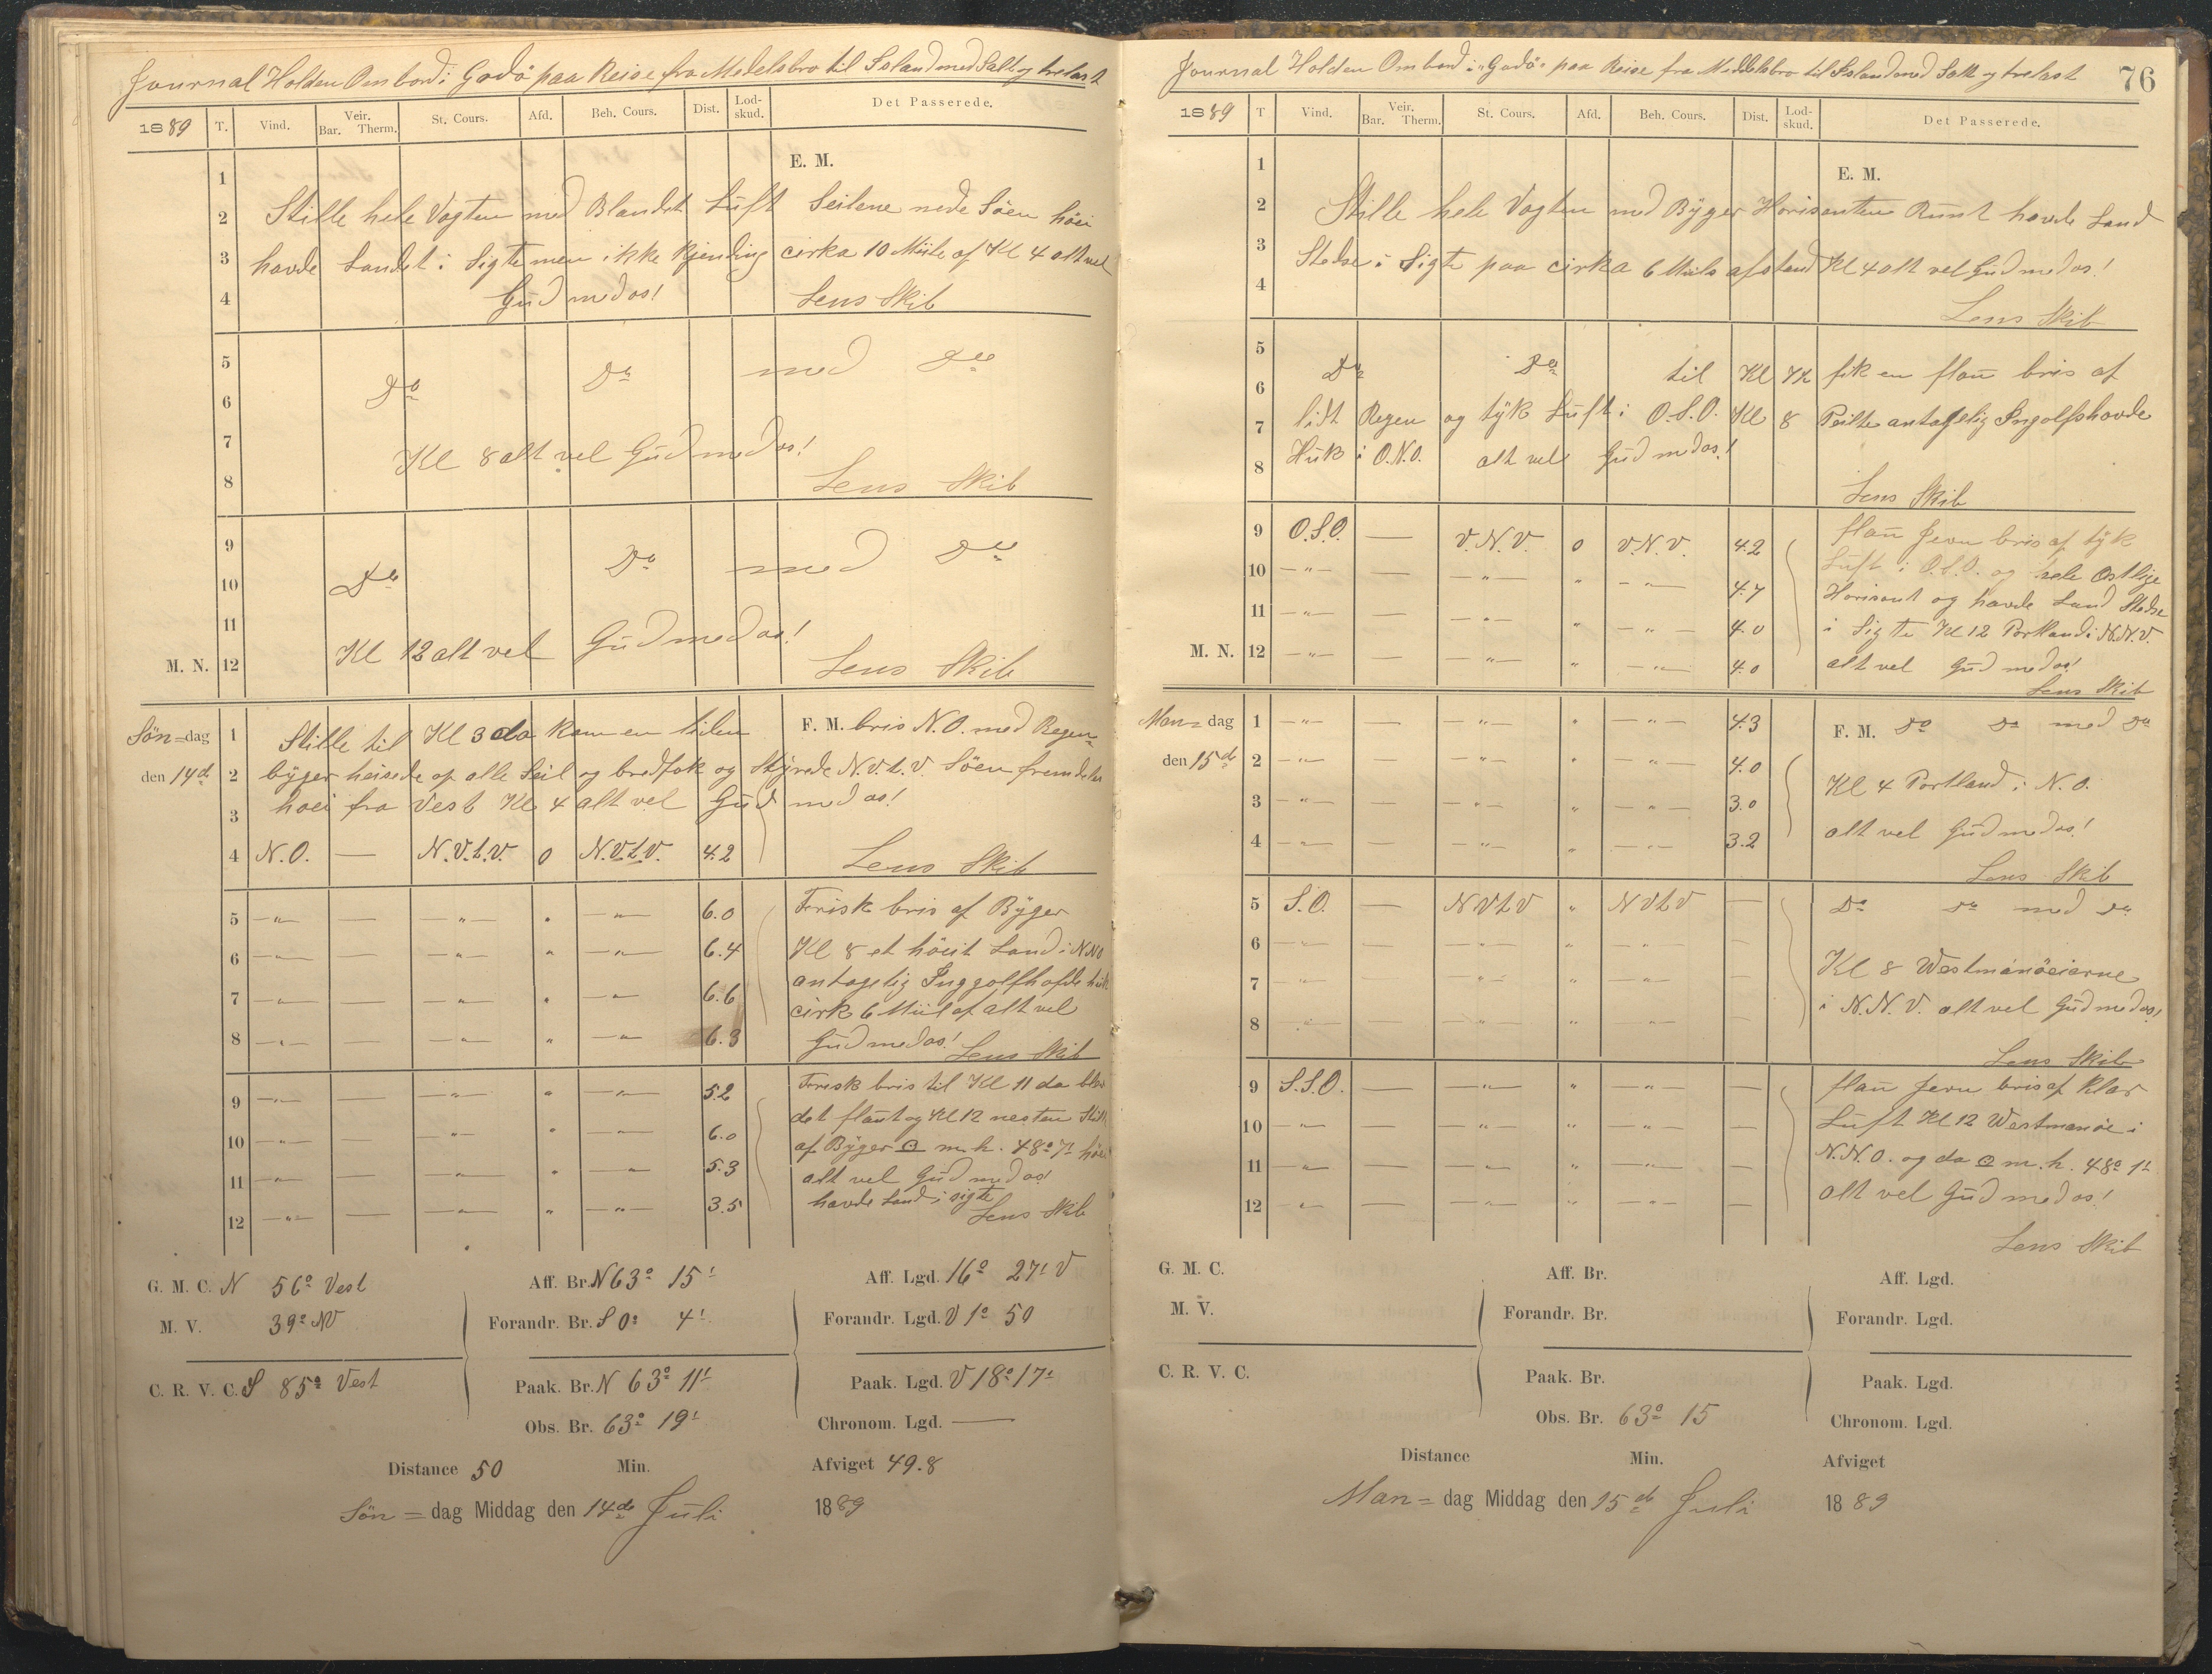 Journal Holden Ombord i Godö paa Reise fra Medelsbro til Island med Salt og trelast
1889 T. Vind. Veir. Bar. Therm. St. Cours. Afd. Beh. Cours. Dist. Lod-skud. Det Passerede.
E. M.
1
2 Stille hele Vagten med Blandet Luft Seilene nede Söen höi
3 havde Landet i Sigte men ikke Kjending cirka 10 Miile af Kl 4 alt vel
4 Gud med os! Lens Skib
5
6 Do Do med Do
7 Kl 8 alt vel Gud med os!
8 Lens Skib
9
10 Do Do med Do
11
M. N. 12 Kl 12 alt vel Gud med os! Lens Skib
Sön=dag 1 Stille til Kl 3 da kom en liden F. M. bris N.O. med Regen=
den 14d 2 byger heisede op alle Seil og bredfok og Styrede N.V.t.V. Söen fremdeles
3 hoei fra Vest Kl 4 alt vel Gud med os!
4 N.O. — N.V.t.V. 0 N.V.t.V. 4.2 Lens Skib
5 —"— — —"— " —"— 6.0 Frisk bris af Byger
6 —"— — —"— " —"— 6.4 Kl 8 et höit Land i NNO
7 —"— — —"— " —"— 6.6 antagelig Inggolfhofde huk
cirk 6 Miil af alt vel
8 —"— — —"— " —"— 6.3 Gud med os! Lens Skib
9 —"— — —"— " —"— 5.2 Frisk bris til Kl 11 da blev
det flaut og Kl 12 nesten Stille
10 —"— — —"— " —"— 6.0 af Byger ⊙ m.h. 48° 7' höi
11 —"— — —"— " —"— 5.3 alt vel Gud med os!
12 —"— — —"— " —"— 3.5 havde Land i sigte Lens Skib
G. M. C. N 56° Vest Aff. Br. N 63° 15' Aff. Lgd. 16° 27' V
M. V. 39° NV Forandr. Br. S 0° 4' Forandr. Lgd. V 1° 50
C. R. V. C. S 85° Vest Paak. Br. N 63° 11' Paak. Lgd. V 18° 17'
Obs. Br. 63° 19' Chronom. Lgd. —
Distance 50 Min. Afviget 49.8
Sön = dag Middag den 14de Juli 1889
Journal Holden Ombord i "Godö" paa Reise fra Meddelsbro til Island med Salt og trelast 76
1889 T Vind. Veir. Bar. Therm. St. Cours. Afd. Beh. Cours. Dist. Lod-skud. Det Passerede.
1 E. M.
2 Stille hele Vagten med Byger Horisonten Runt havde Land
3 Stedse i Sigte paa cirka 6 Miils afstand Kl 4 alt vel Gud med os!
4 Lens Skib
5
6 Do Do til Kl 7½ fik en flau bris af
7 lidt Regen og tyk Luft i O.S.O. Kl 8 Peilte antagelig Ingolfshovde
8 Huk i O.N.O. alt vel Gud med os!
Lens Skib
9 O.S.O. — V.N.V. 0 V.N.V. 4.2 flau Jevn bris af tyk
Luft i O.S.O. og hele Ostlige
10 —"— — —"— " —"— 4.7 Horisont og havde Land Stedse
11 —"— — —"— " —"— 4.0 i Sigte Kl 12 Portland i N.N.V.
M. N. 12 —"— — —"— " —"— 4.0 alt vel Gud med os!
Lens Skib
Man=dag 1 —"— — —"— " —"— 4.3 F. M. Do Do med Do
den 15de 2 —"— — —"— " —"— 4.0 Kl 4 Portland i N.O.
3 —"— — —"— " —"— 3.0
4 —"— — —"— " —"— 3.2 alt vel Gud med os!
Lens Skib
5 S.O. — NVtV " NVtV — Do Do med Do
6 —"— — —"— " —"— — Kl 8 Westmanöeierne
7 —"— — —"— " —"— — i N.N.V. alt vel Gud med os!
8 —"— — —"— " —"— —
Lens Skib
9 S.S.O. — —"— " —"— — flau Jevn bris af Klar
10 —"— — —"— " —"— — Luft Kl 12 Westmanöe i
11 —"— — —"— " —"— — N.N.O. og da ⊙ m.h. 48° 1'
12 —"— — —"— " —"— — alt vel Gud med os!
Lens Skib
G. M. C. Aff. Br. Aff. Lgd.
M. V. Forandr. Br. Forandr. Lgd.
C. R. V. C. Paak. Br. Paak. Lgd.
Obs. Br. 63° 15 Chronom. Lgd.
Distance Min. Afviget
Man = dag Middag den 15de Juli 1889